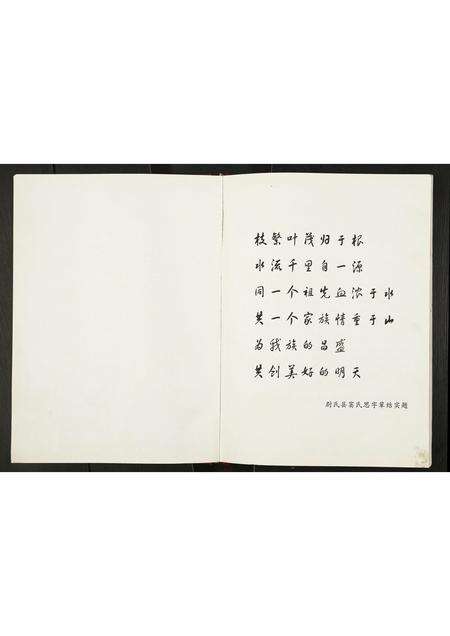 枝繁叶茂归于根
水流千里自一源
同一个祖先血浓于水
共一个家族情重于山
为我族的昌盛
共创美好的明天
尉氏县 氏思字辈 实题